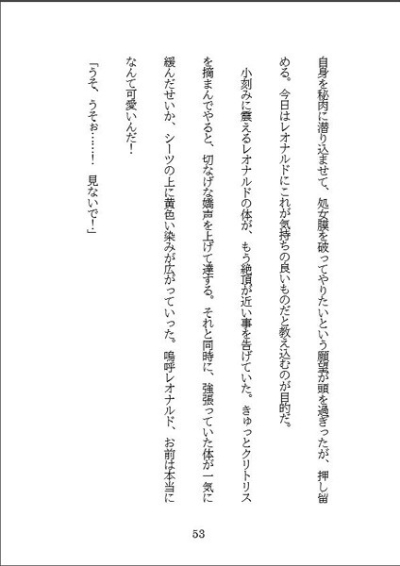 自身を秘肉に潜り込ませて、処女膜を破ってやりたいという願望が頭を過ぎったが、押し留
める。今日はレオナルドにこれが気持ちの良いものだと教え込むのが目的だ。
　小刻みに震えるレオナルドの体が、もう絶頂が近い事を告げていた。きゅっとクリトリス
を摘まんでやると、切なげな嬌声を上げて達する。それと同時に、強張っていた体が一気に
緩んだせいか、シーツの上に黄色い染みが広がっていった。嗚呼レオナルド、お前は本当に
なんて可愛いんだ！
「うそ、うそぉ……！　見ないで！」
53